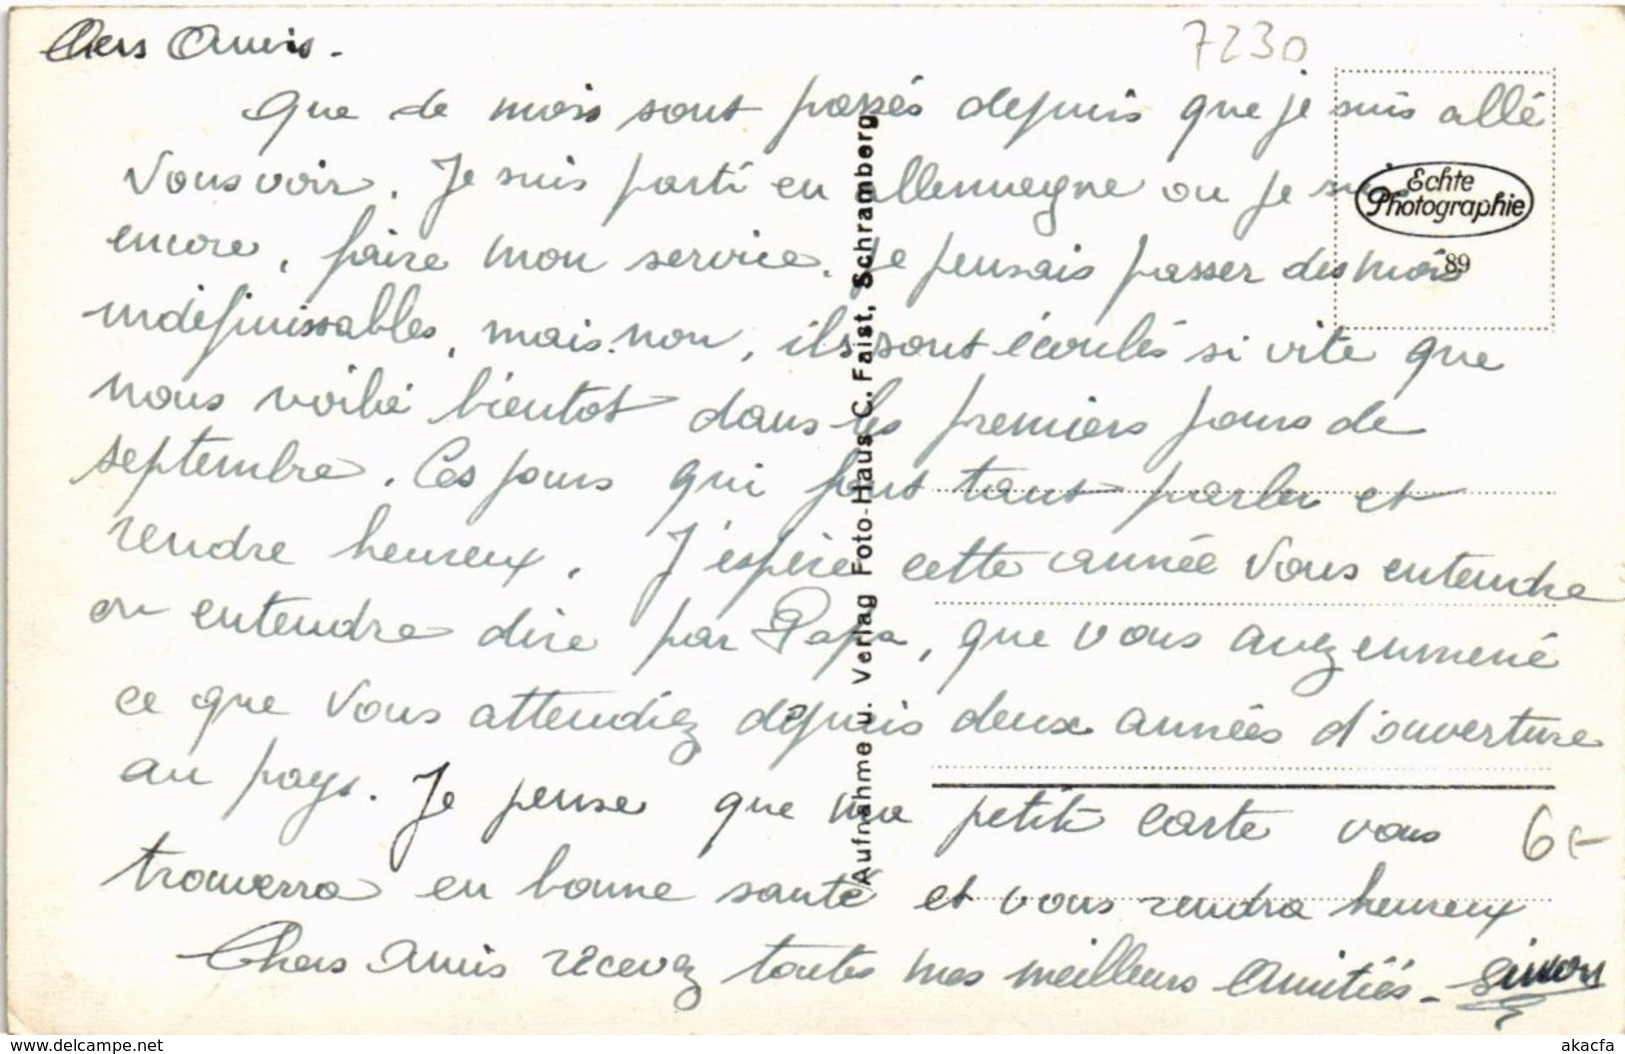 Chers Amis.
7230
Que de mois sont passés depuis que je suis allé
vous voir. Je suis parti en allemagne ou je suis
encore, faire mon service. Je pensais passer des mois
indéfinissables, mais non, ils sont écoulés si vite que
nous voilà bientot dans les premiers jours de
septembre. Ces jours qui font tant parler et
rendre heureux. J'espère cette année vous entendre
ou entendre dire par Papa, que vous avez enmené
ce que vous attendiez depuis deux années d'ouverture
au pays. Je pense que ma petite carte vous
trouvera en bonne santé et vous rendra heureux
Chers Amis recevez toutes mes meilleurs Amitiés - Simon
Echte
Photographie
89
Aufnahme u. Verlag Foto-Haus C. Faist, Schramberg
www.delcampe.net
akacfa